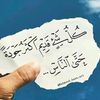 كُلُّ شَيْءٍ قَدِيمٍ أَكْثَرُ جَوْدَةً
حَتَّى النَّاسُ...